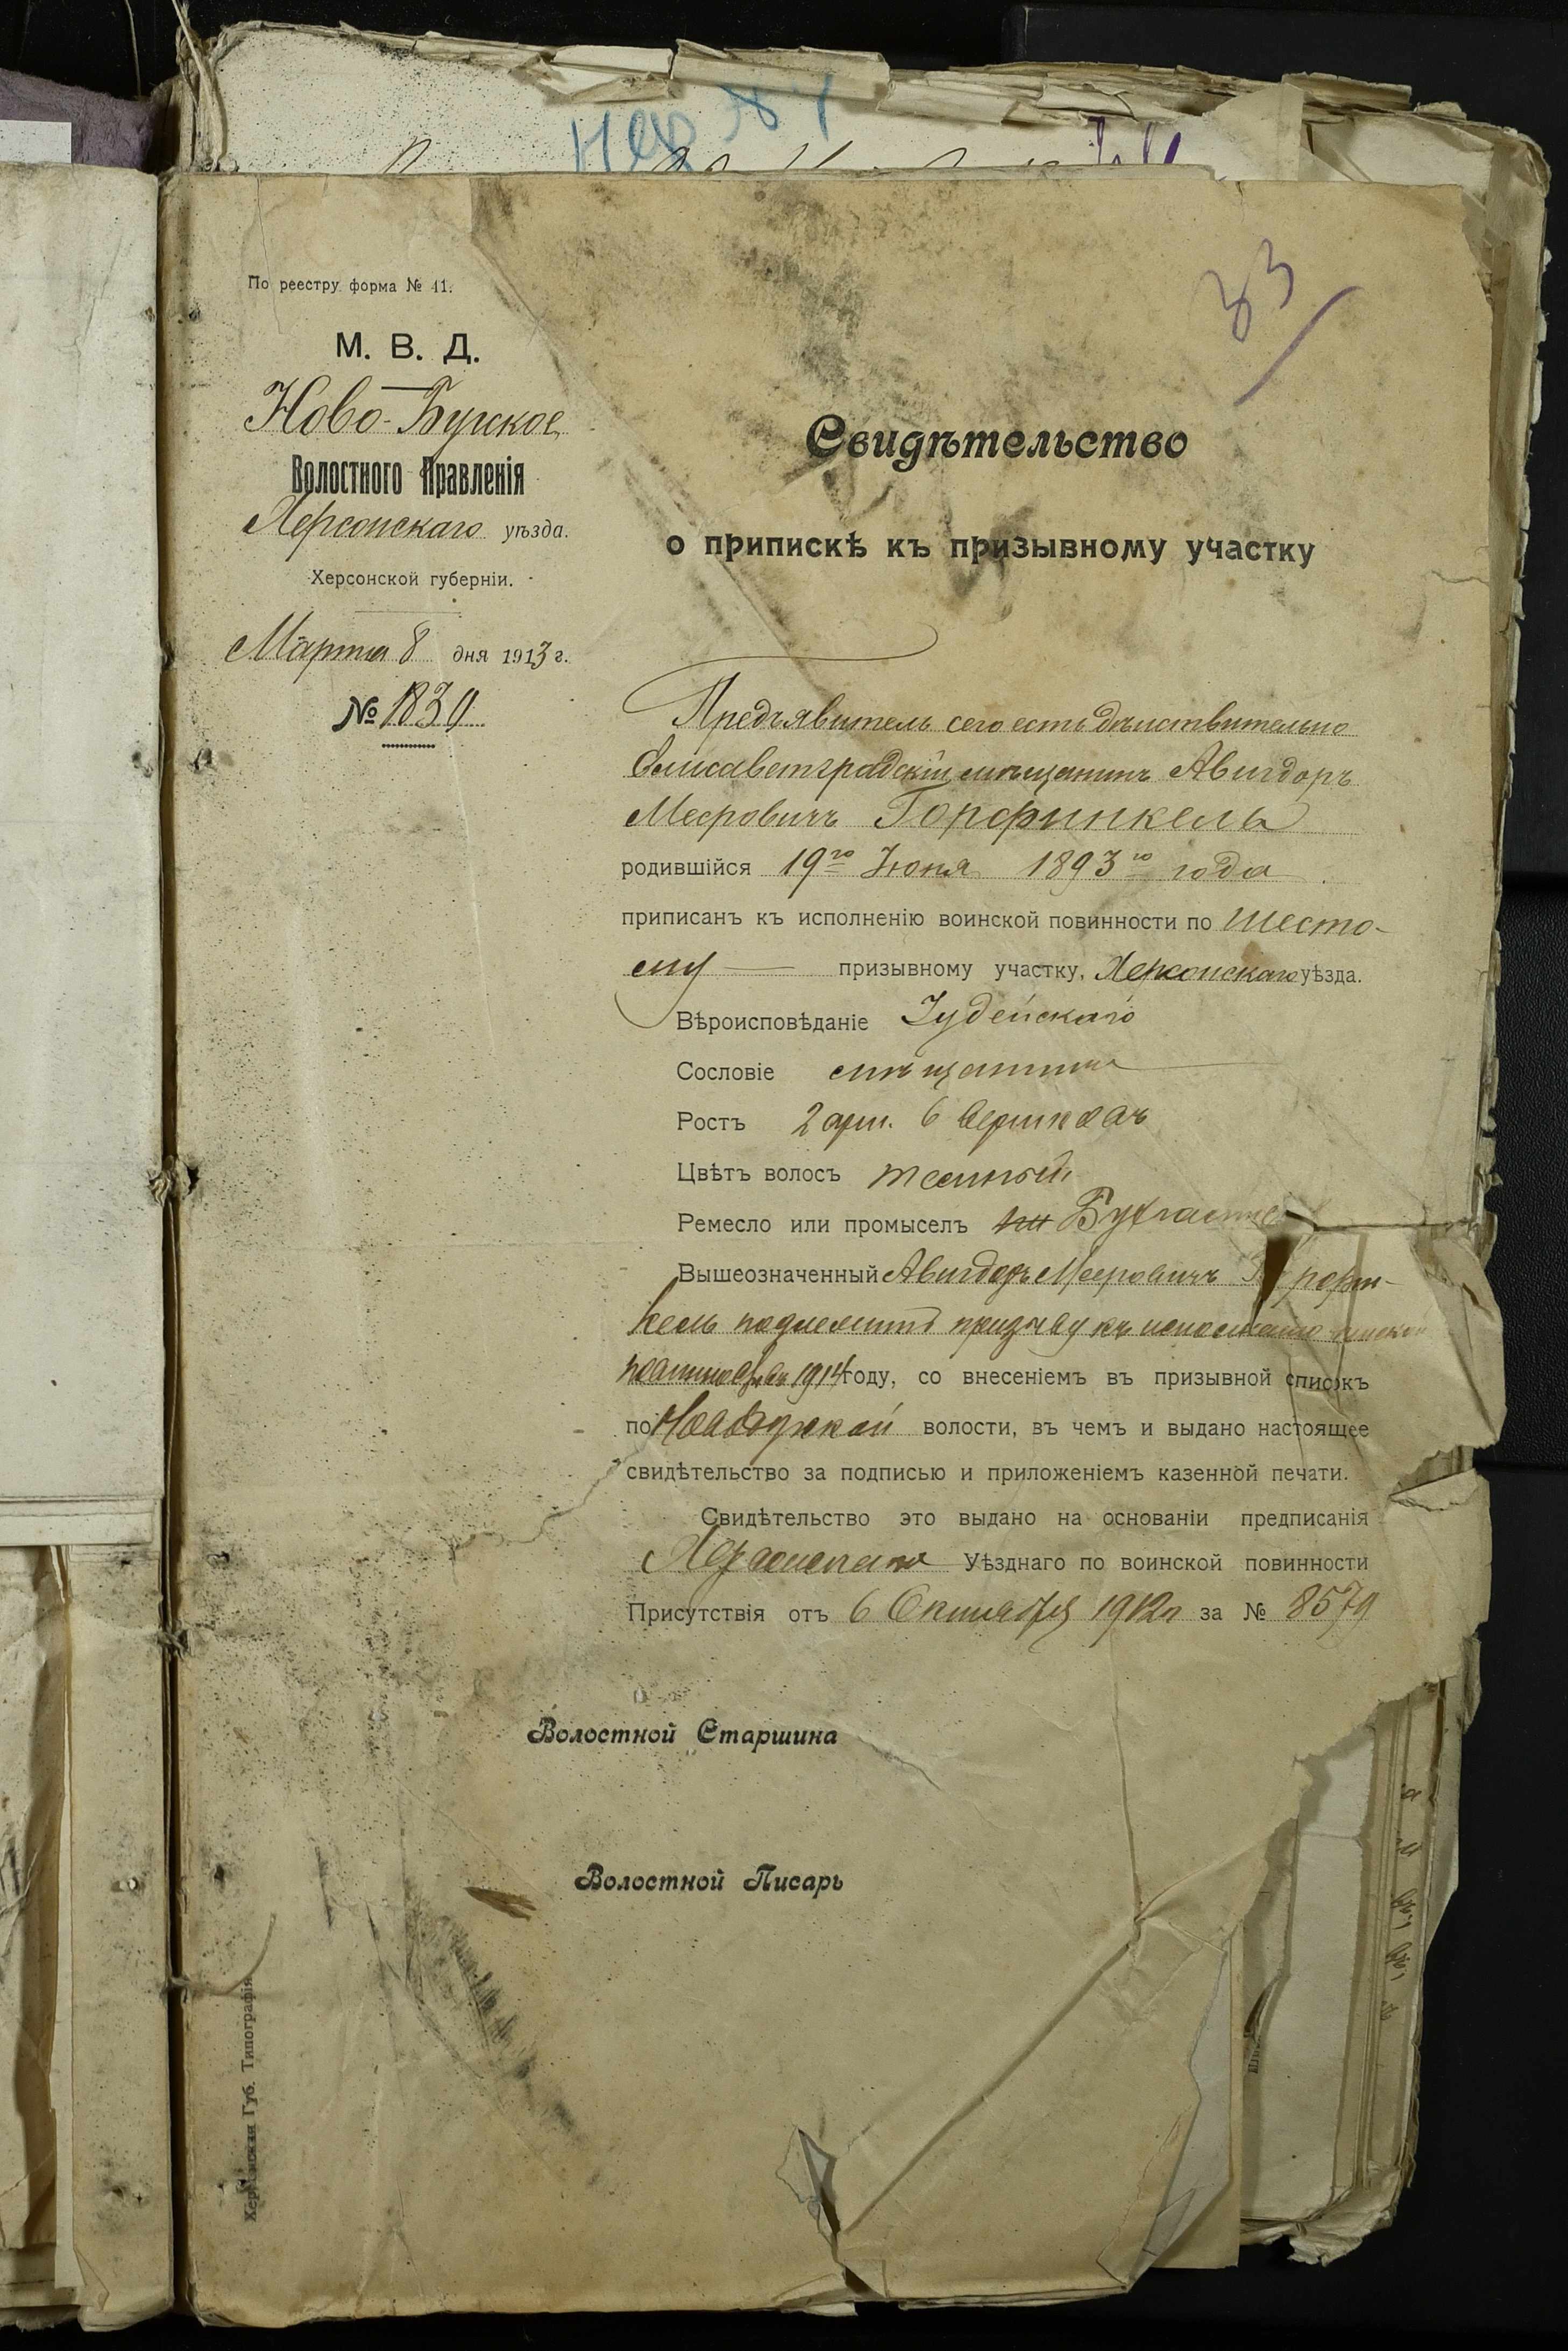 33
По реестру форма № 11.
М. В. Д.
Ново-Бугское
Волостного Правленія
Херсонскаго уѣзда.
Херсонской губерніи.
Марта 8 дня 1913 г.
№ 1830
Свидѣтельство
о припискѣ къ призывному участку
Предъявитель сего есть дѣйствительно
Елисаветградскій мѣщанинъ Авигдоръ
Мееровичъ Горфинкель
родившійся 19го Іюня 1893го года
приписанъ къ исполненію воинской повинности по шесто-
му призывному участку, Херсонскаго уѣзда.
Вѣроисповѣданіе Іудейскаго
Сословіе мѣщанинъ
Ростъ 2 арш. 6 вершковъ
Цвѣтъ волосъ темный
Ремесло или промыселъ
Вышеозначенный Авигдоръ Мееровичъ Горфин-
кель подлежитъ призыву къ исполненію воинской
повинности въ 1914 году, со внесеніемъ въ призывной списокъ
по Новобугской волости, въ чемъ и выдано настоящее
свидѣтельство за подписью и приложеніемъ казенной печати.
Свидѣтельство это выдано на основаніи предписанія
Херсонскаго Уѣзднаго по воинской повинности
Присутствія отъ 6 Октября 1912 г за № 8579
Волостной Старшина
Волостной Писарь
Херсонская Губ. Типографія